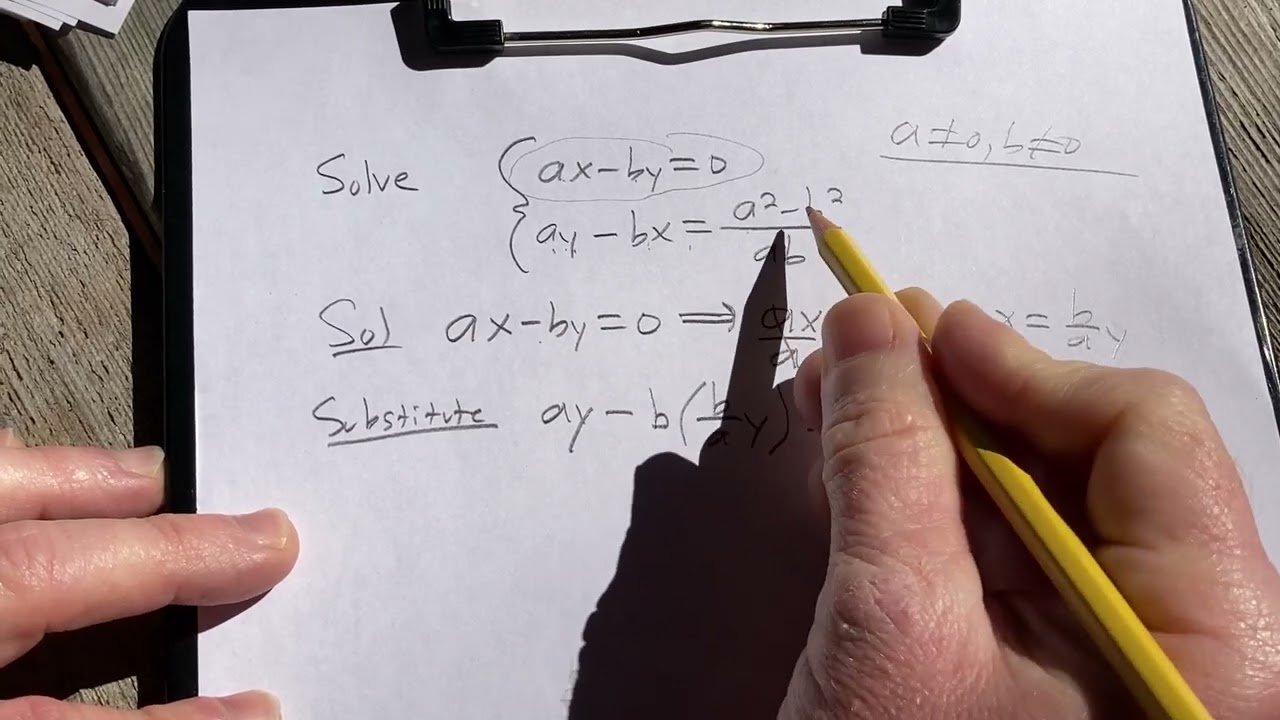 Solve { ax-by=0
a≠0, b≠0
ay-bx= (a²-b²)/ab
Sol ax-by=0 ⇒ ax/a x = b/a y
Substitute ay-b(b/a y)